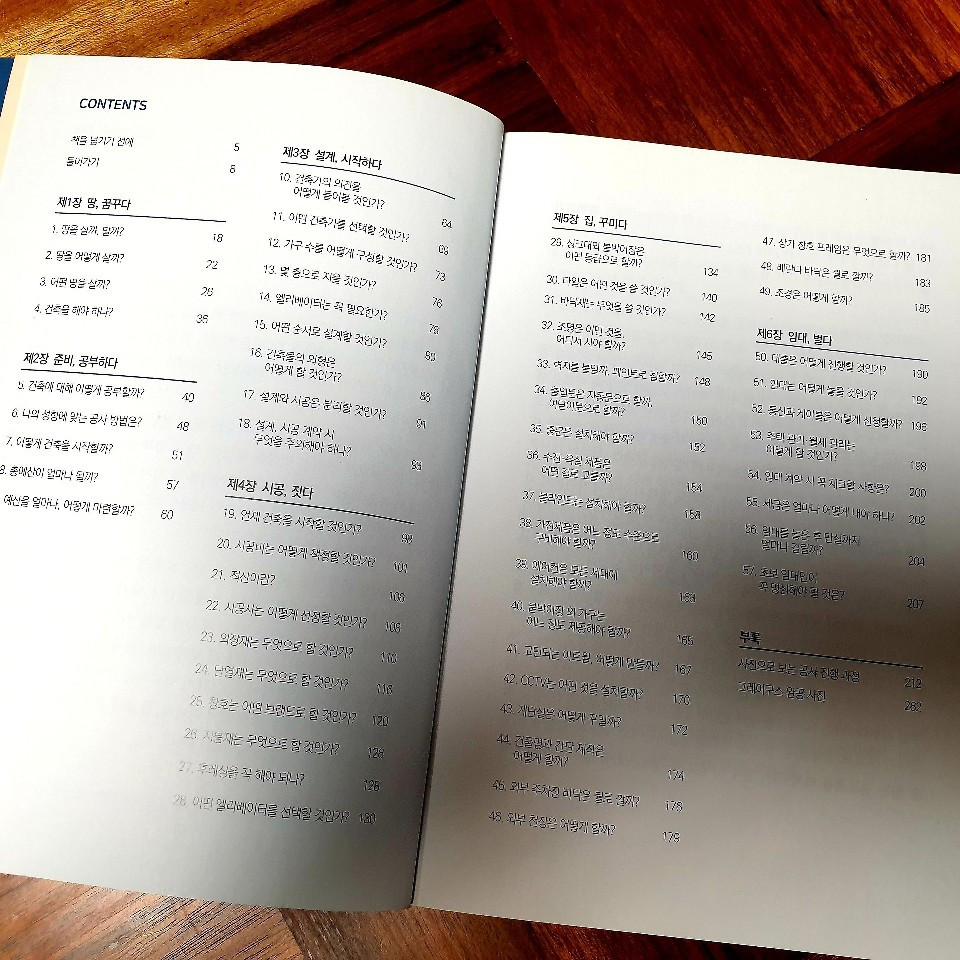 CONTENTS
책을 넘기기 전에 5
들어가기 8
제1장 땅, 꿈꾸다
1. 땅을 살까, 말까? 18
2. 땅을 어떻게 살까? 22
3. 어떤 땅을 살까? 26
4. 건축을 해야 하나? 36
제2장 준비, 공부하다
5. 건축에 대해 어떻게 공부할까? 40
6. 나의 성향에 맞는 공사 방법은? 48
7. 어떻게 건축을 시작할까? 51
8. 총예산이 얼마나 될까? 57
예산을 얼마나, 어떻게 마련할까? 60
제3장 설계, 시작하다
10. 건축가의 의견을
어떻게 들어볼 것인가? 64
11. 어떤 건축가를 선택할 것인가? 69
12. 가구 수를 어떻게 구성할 것인가? 73
13. 몇 층으로 지을 것인가? 76
14. 엘리베이터는 꼭 필요한가? 79
15. 어떤 순서로 설계할 것인가?
16. 건축물의 외형은
어떻게 할 것인가? 88
17. 설계와 시공은 분리할 것인가? 91
18. 설계, 시공 계약 시
무엇을 주의해야 하나? 93
제4장 시공, 짓다
19. 언제 건축을 시작할 것인가? 98
20. 시공비는 어떻게 책정할 것인가? 101
21. 적산이란? 103
22. 시공사는 어떻게 선정할 것인가? 105
23. 외장재는 무엇으로 할 것인가? 110
24. 단열재는 무엇으로 할 것인가? 116
25. 창호는 어떤 브랜드로 할 것인가? 120
26. 지붕재는 무엇으로 할 것인가?
27. 후레싱을 꼭 해야 되나?
28. 어떤 엘리베이터를 선택할 것인가? 130
제5장 집, 꾸미다
29. 싱크대와 붙박이장은
어떤 등급으로 할까? 134
30. 타일은 어떤 것을 쓸 것인가? 140
31. 바닥재는 무엇을 쓸 것인가? 142
32. 조명은 어떤 것을,
어디서 사야 할까? 145
33. 벽지를 붙일까, 페인트로 칠할까? 148
34. 출입문은 자동문으로 할까,
여닫이문으로 할까? 150
35. 중문은 설치해야 할까? 152
36. 수전·욕실 제품은
어떤 걸로 고를까? 154
37. 블라인드는 설치해야 할까? 158
38. 가전제품은 어느 정도 수준으로
구비해야 할까? 160
39. 에어컨은 모든 세대에
설치해야 할까? 163
40. 붙박이장 외 가구는
어느 정도 제공해야 할까? 165
41. 고민되는 아트월, 어떻게 만들까? 167
42. CCTV는 어떤 것을 설치할까? 170
43. 계단실은 어떻게 꾸밀까? 172
44. 건물명과 간판 제작은
어떻게 할까? 174
45. 외부 주차장 바닥은 뭘로 깔까? 176
46. 외부 천장은 어떻게 할까? 179
47. 상가 창호 프레임은 무엇으로 할까? 181
48. 베란다 바닥은 뭘로 할까? 183
49. 조경은 어떻게 할까? 185
제6장 임대, 벌다
50. 대출은 어떻게 진행할 것인가? 190
51. 임대는 어떻게 놓을 것인가? 192
52. 통신과 케이블은 어떻게 신청할까? 196
53. 주택 관리·월세 관리는
어떻게 할 것인가? 198
54. 임대 계약 시 꼭 체크할 사항은? 200
55. 세금은 얼마나 어떻게 내야 하나? 202
56. 임대를 놓은 후 만실까지
얼마나 걸릴까? 204
57. 초보 임대인이
꼭 명심해야 할 것은? 207
부록
사진으로 보는 공사 진행 과정 212
그레이우스 완공 사진 262